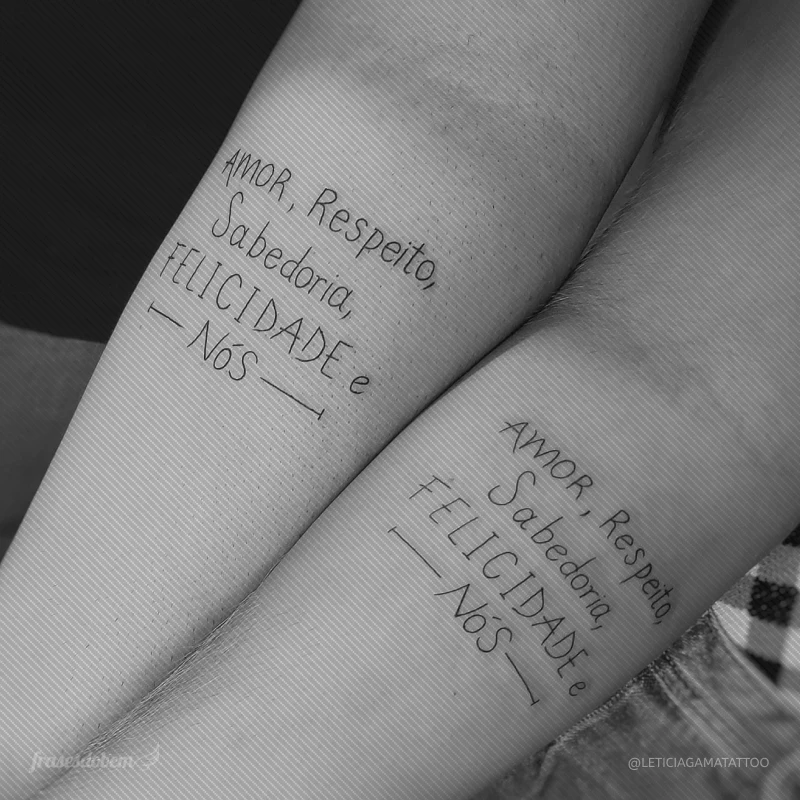 AMOR, Respeito,
Sabedoria,
FELICIDADE e
NóS
AMOR, Respeito,
Sabedoria,
FELICIDADE e
NóS
frasesdobem
@LETICIAGAMATATTOO